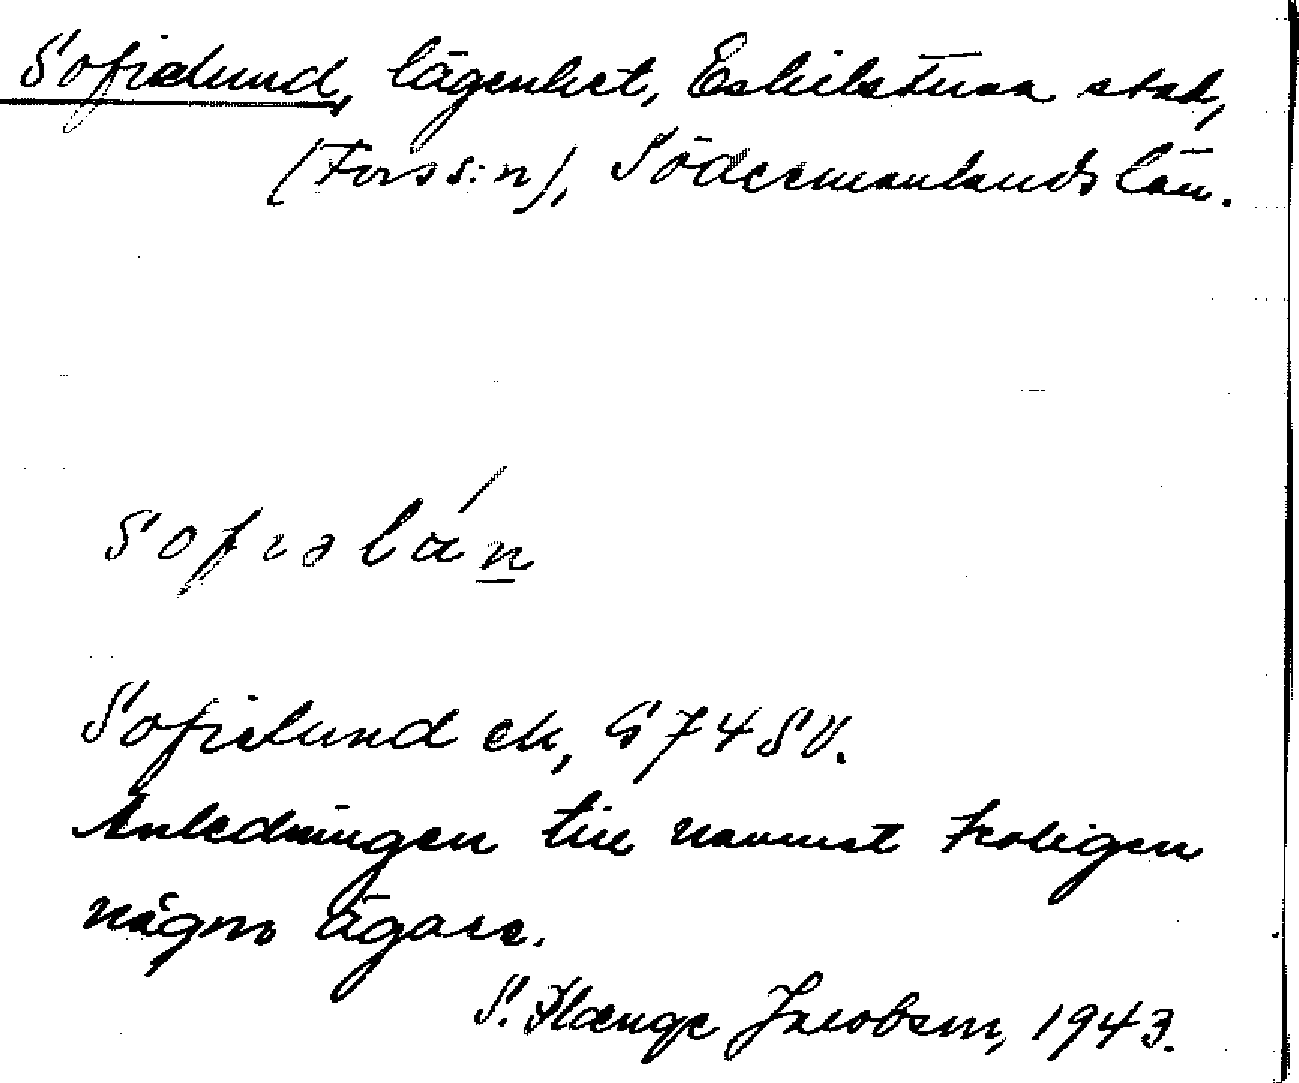 Sofielund, lägenhet, Eskilstuna stad,
(Fors s:n), Södermanlands län.
Sofislán
Sofielund ek, G 74 SV.
Anledningen till namnet troligen
någon ägare.
S. Klænge Jacobson, 1943.